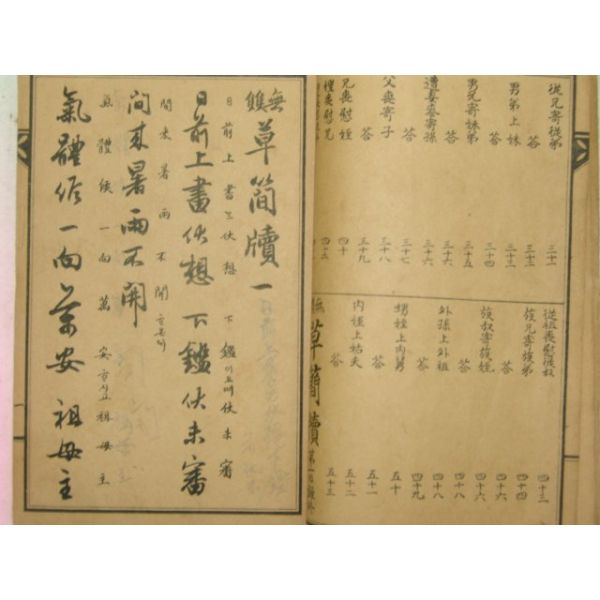 從兄寄從弟 三十一
答 三十二
男弟上妹 三十三
答 三十四
男兄寄妹弟 三十五
答 三十六
遭妻喪寄孫 三十六
答 三十七
父喪寄子 三十八
答 三十九
兄喪慰姪 四十
從祖喪慰從叔 四十三
族兄寄族弟 四十四
答 四十六
族叔寄族姪 四十六
答 四十八
外孫上外祖 四十八
答 四十九
甥姪上內舅 五十
答 五十一
內從上姑夫 五十二
答 五十三
草簡牘第一目錄終
無雙草簡牘一
日前上書는伏想 下鑑이오며伏未審
日前上書伏想 下鑑伏未審
間來暑雨不開
間來暑雨不開
氣體候一向萬安 祖母主
氣體候一向萬安 祖母主